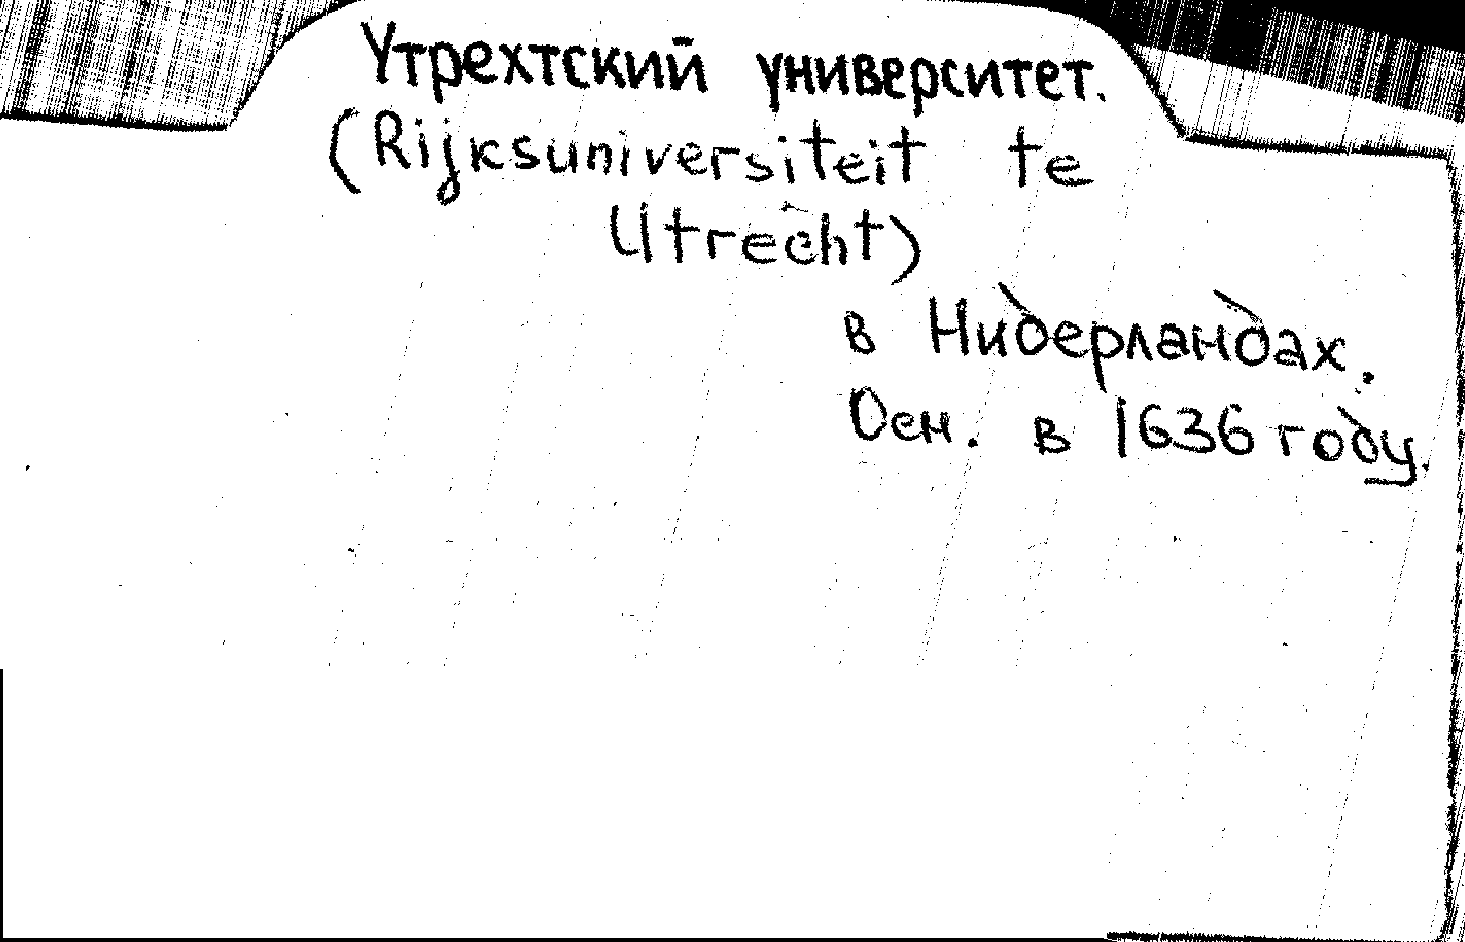 Утрехтский университет.
(Rijksuniversiteit te
Utrecht)
в Нидерландах.
Осн. в 1636 году.